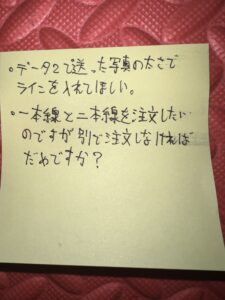 ・データ2で送った写真の太さで
ラインを入れてほしい。
・一本線と二本線を注文したい
のですが別で注文しなければ
だめですか？